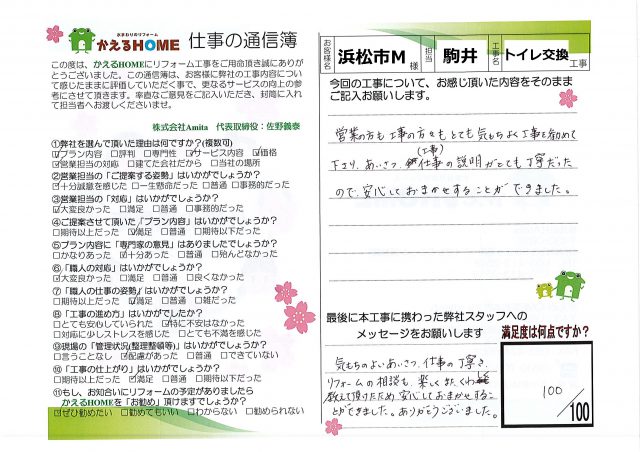 水まわりのリフォーム
かえるHOME 仕事の通信簿
この度は、かえるHOMEにリフォーム工事をご用命頂き誠にありがとうございました。この通信簿は、お客様に弊社の工事内容について感じたままに評価していただく事で、更なるサービスの向上の参考にさせて頂きます。率直なご意見をご記入いただき、封筒に入れて担当者へお渡しくださいませ。
株式会社Amita 代表取締役：佐野義泰
①弊社を選んで頂いた理由は何ですか?(複数可)
☑プラン内容 □評判 □専門性 ☑サービス内容 ☑価格
☑営業担当の対応 □建てた会社だから □当社の場所
②営業担当の「ご提案する姿勢」はいかがでしょうか?
☑十分誠意を感じた □一生懸命だった □普通 □事務的だった
③営業担当の「対応」はいかがでしょうか?
☑大変良かった □満足 □普通 □事務的だった
④ご提案させて頂いた「プラン内容」はいかがでしょうか?
□期待以上だった ☑満足 □普通 □期待以下だった
⑤プラン内容に「専門家の意見」はありましたでしょうか?
□かなりあった ☑十分あった □普通 □殆んどなかった
⑥「職人の対応」はいかがでしょうか?
☑大変良かった □満足 □普通 □良くなかった
⑦「職人の仕事の姿勢」はいかがでしょうか?
□期待以上だった ☑満足 □普通 □雑だった
⑧「工事の進め方」はいかがでしたか?
□とても安心していられた ☑特に不安はなかった
□対応に少しストレスを感じた □とても不満を感じた
⑨現場の「管理状況(整理整頓等)」はいかがでしょうか?
□言うことなし ☑配慮があった □普通 □できていない
⑩「工事の仕上がり」はいかがでしょうか?
□期待以上だった ☑満足 □普通 □期待以下だった
⑪もし、お知合いにリフォームの予定がありましたら
かえるHOMEを「お勧め」頂けますでしょうか?
☑ぜひ勧めたい □勧めてもいい □わからない □勧められない
お客様名 浜松市M 様 担当 駒井 工事名 トイレ交換 工事
今回の工事について、お感じ頂いた内容をそのままご記入お願いします。
営業の方も工事の方々もとても気もちよく工事を勧めて
(工事)
下さり、あいさつ、仕事の説明がとても丁寧だった
ので、安心しておまかせすることができました。
最後に本工事に携わった弊社スタッフへの
メッセージをお願いします
満足度は何点ですか?
気もちのよいあいさつ、仕事の丁寧さ、
リフォームの相談も、楽しく、また、くわしく
教えて頂けたため、安心しておまかせするこ
とができました。ありがとうございました。
100
/100